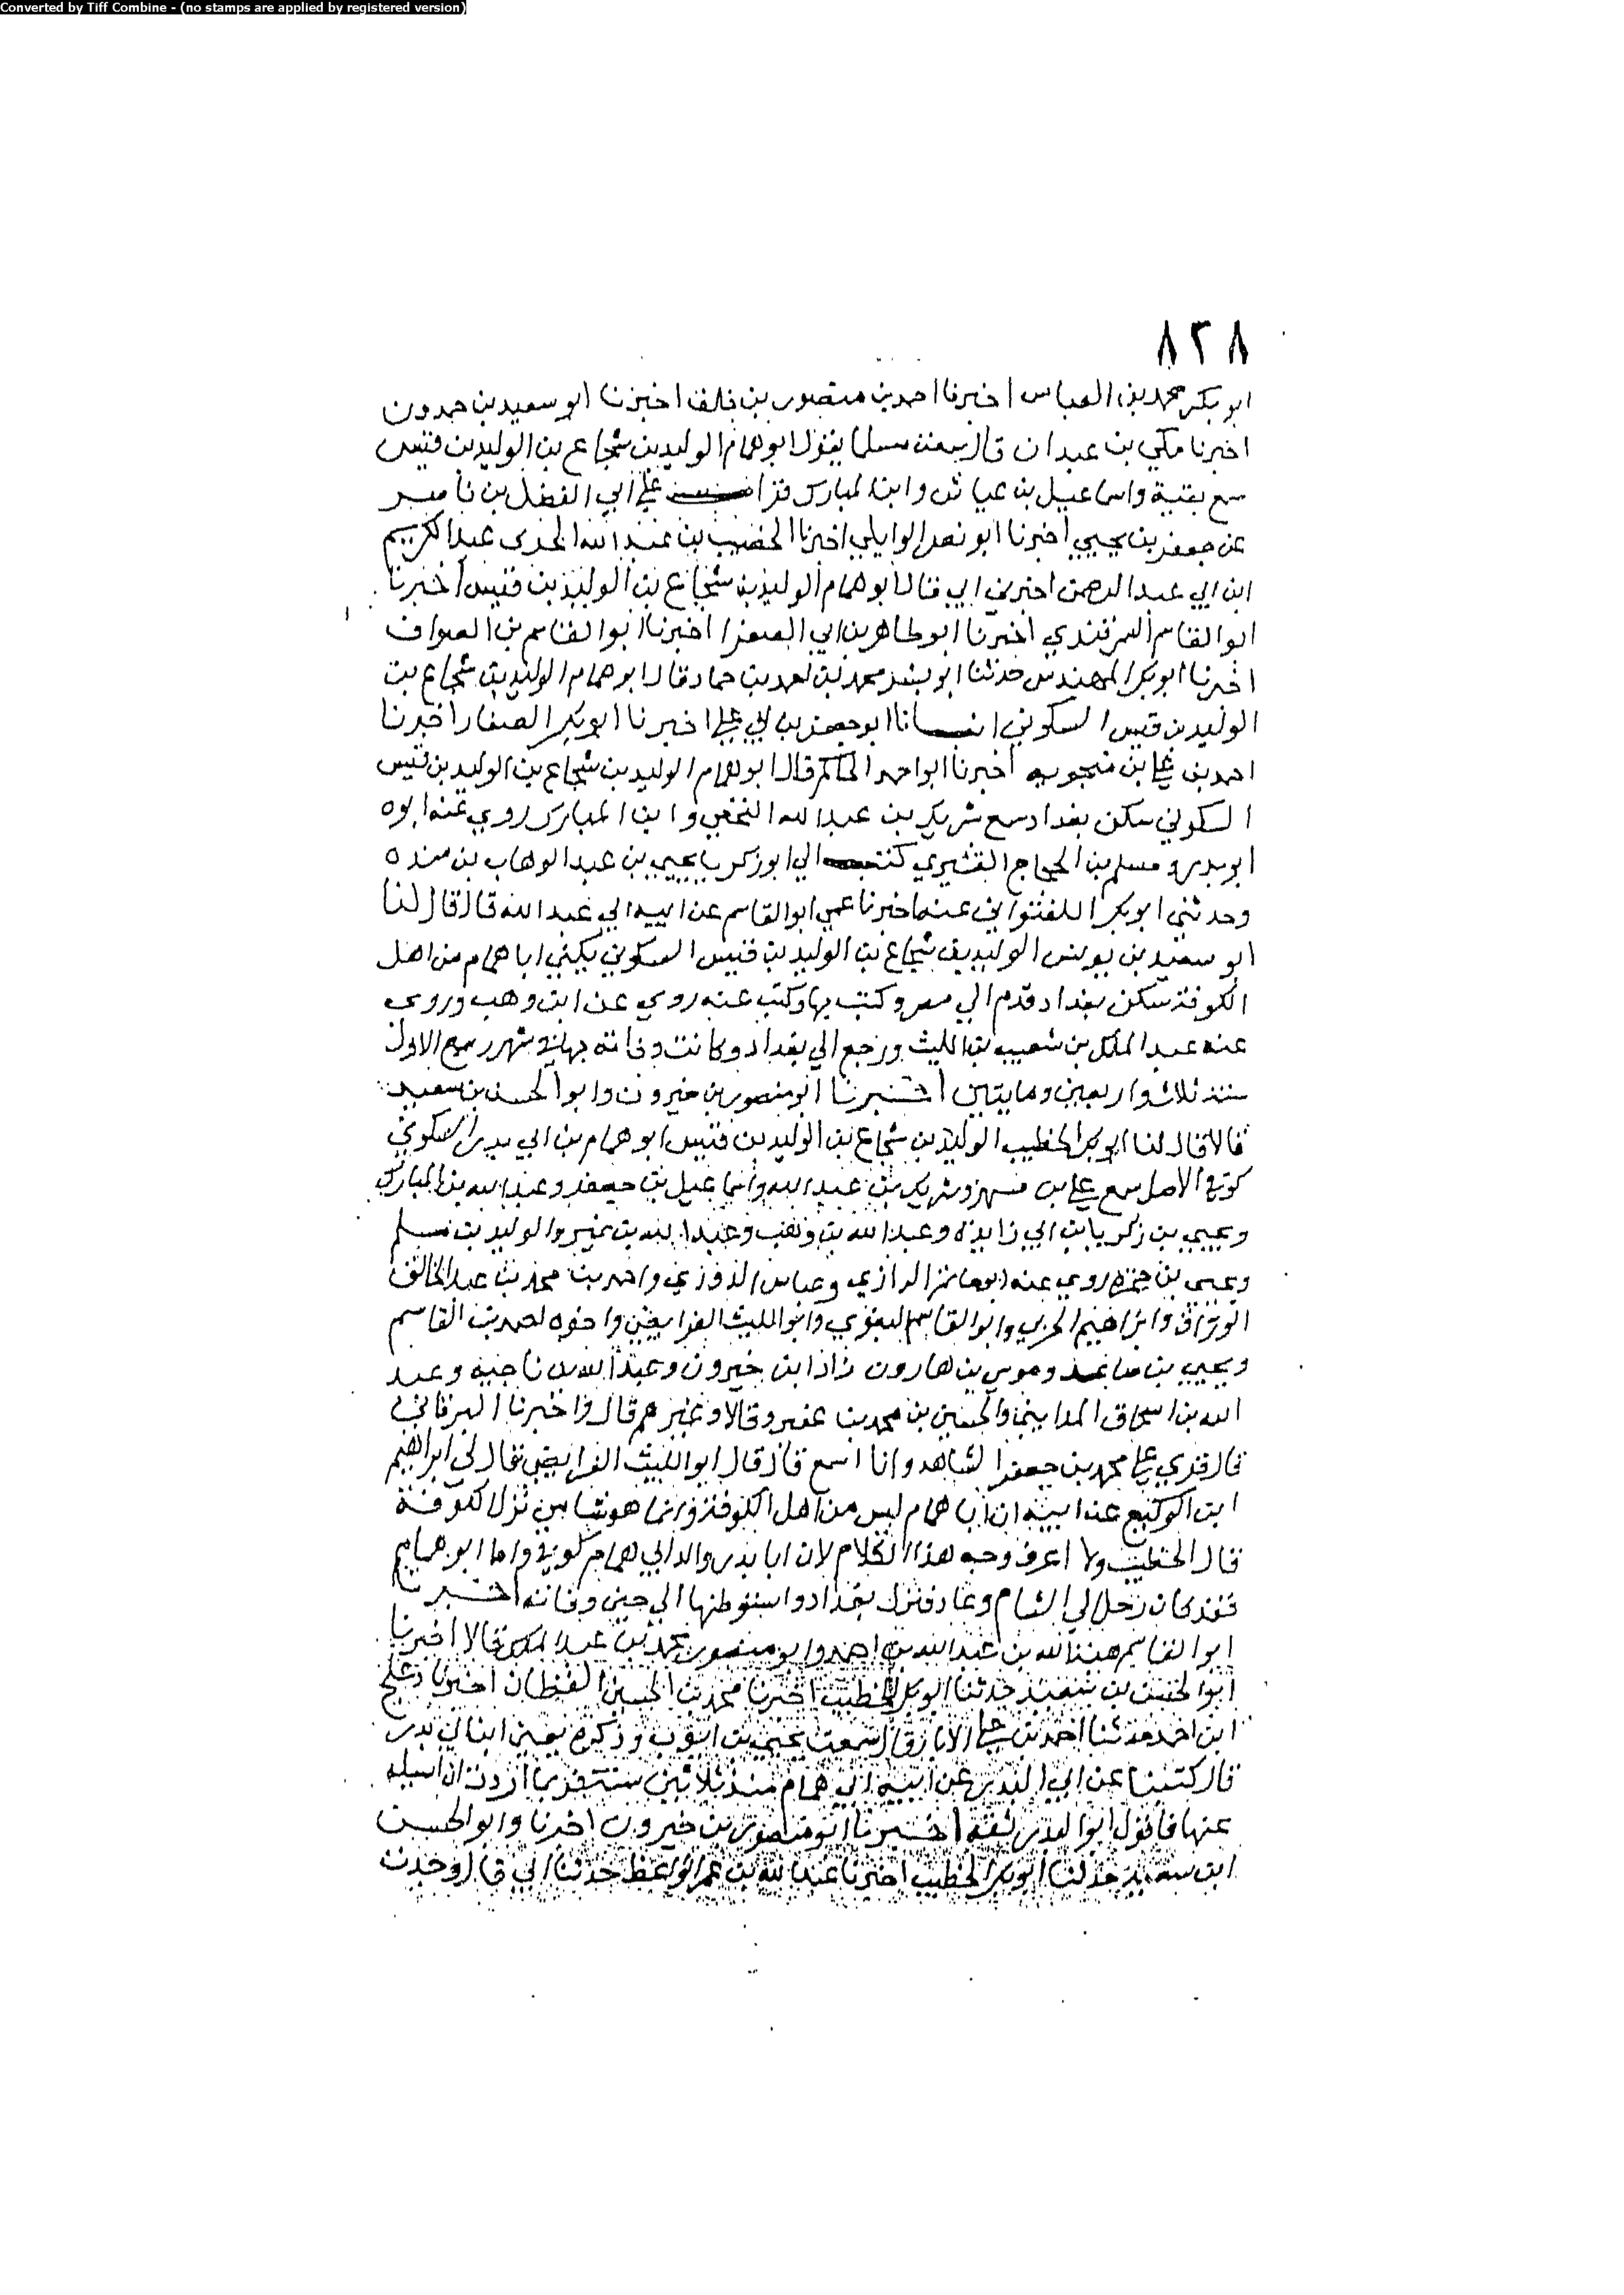 Converted by Tiff Combine - (no stamps are applied by registered version)
٨٢٨
ابو بكر محمد بن العباس اخبرنا احمد بن منصور بن خلف اخبرنا ابو سعيد بن حمدون
اخبرنا مكي بن عبدان قال سمعت مسلما يقول ابو همام الوليد بن شجاع بن الوليد بن قيس
سمع بقية واسماعيل بن عياش وابن المبارك قرات علي ابي الفضل بن ناصر
عن جعفر بن يحيي اخبرنا ابو نصر الوايلي اخبرنا الخصيب بن عبد الله اخبرني عبد الكريم
ابن ابي عبد الرحمن اخبرني ابي قال ابو همام الوليد بن شجاع بن الوليد بن قيس اخبرنا
ابو القاسم السمرقندي اخبرنا ابو طاهر بن ابي الصقر اخبرنا ابو القاسم بن الصواف
اخبرنا ابو بكر المهندس حدثنا ابو بشر محمد بن احمد بن حماد قال ابو همام الوليد بن شجاع بن
الوليد بن قيس السكوني انبانا ابو جعفر بن ابي علي اخبرنا ابو بكر الصفار اخبرنا
احمد بن علي بن منجويه اخبرنا ابو احمد الحاكم قال ابو همام الوليد بن شجاع بن الوليد بن قيس
السكوني سكن بغداد سمع شريك بن عبد الله النخعي وابن المبارك روي عنه ابوه
ابو بدر و مسلم بن الحجاج القشيري كتب الي ابو زكريا يحيي بن عبد الوهاب بن منده
وحدثني ابو بكر اللفتواني عنه اخبرنا عمي ابو القاسم عن ابيه ابي عبد الله قال قال لنا
ابو سعيد بن يونس الوليد بن شجاع بن الوليد بن قيس السكوني يكني ابا همام من اهل
الكوفة سكن بغداد قدم الي مصر وكتب بها وكتب عنه روي عن ابن وهب وروي
عنه عبد الملك بن شعيب بن الليث ورجع الي بغداد وكانت وفاته بها في شهر ربيع الاول
سنة ثلاث واربعين ومايتين اخبرنا ابو منصور بن خيرون وابو الحسن بن سعيد
قالا قال لنا ابو بكر الخطيب الوليد بن شجاع بن الوليد بن قيس ابو همام بن ابي بدر السكوني
كوفي الاصل سمع علي بن مسهر وشريك بن عبد الله واسماعيل بن جعفر وعبد الله بن المبارك
ويحيي بن زكريا بن ابي زايدة وعبد الله بن وهب وعبد الله بن نمير والوليد بن مسلم
ويحيي بن حمزه روي عنه ابو حاتم الرازي وعباس الدوري واحمد بن محمد بن عبد الخالق
الوراق وابراهيم الحربي وابو القاسم البغوي وابو الليث الفرايضي واخوه احمد بن القاسم
ويحيي بن صاعد وموسي بن هارون زاد ابن خيرون وعبد الله بن ناجيه وعبد
الله بن اسحاق المدايني والحسين بن محمد بن عفير وقالا وغيرهم قال واخبرنا البرقاني
قال قري علي محمد بن جعفر الشاهد وانا اسمع قال قال ابو الليث الفرايضي قال لي ابراهيم
ابن الوكيع عن ابيه ان ابا همام ليس من اهل الكوفة وانما هو شامي نزل الكوفة
قال الخطيب ولا اعرف وجه هذا الكلام لان ابا بدر والد ابي همام كوفي واما ابو همام
فقد كان رحل الي الشام وعاد فنزل بغداد واستوطنها الي حين وفاته اخبرنا
ابو القاسم هبة الله بن عبد الله بن احمد وابو منصور محمد بن عبد الملك قالا اخبرنا
ابو الحسن بن سعيد حدثنا ابو بكر الخطيب اخبرنا محمد بن الحسين القطان اخبرنا دعلج
ابن احمد حدثنا احمد بن علي الابار قال سمعت يحيي بن ايوب وذكره يعني ابن ابي بدر
قال كتبنا عن ابي البدر عن ابيه ابي همام منذ ثلاثين سنة فربما اردت ان اسيله
عنها فاقول ابو البدر ثقة اخبرنا ابو منصور بن خيرون اخبرنا وابو الحسن
ابن سعيد حدثنا ابو بكر الخطيب اخبرنا عبد الله بن عمر الواعظ حدثنا ابي قال وحدث